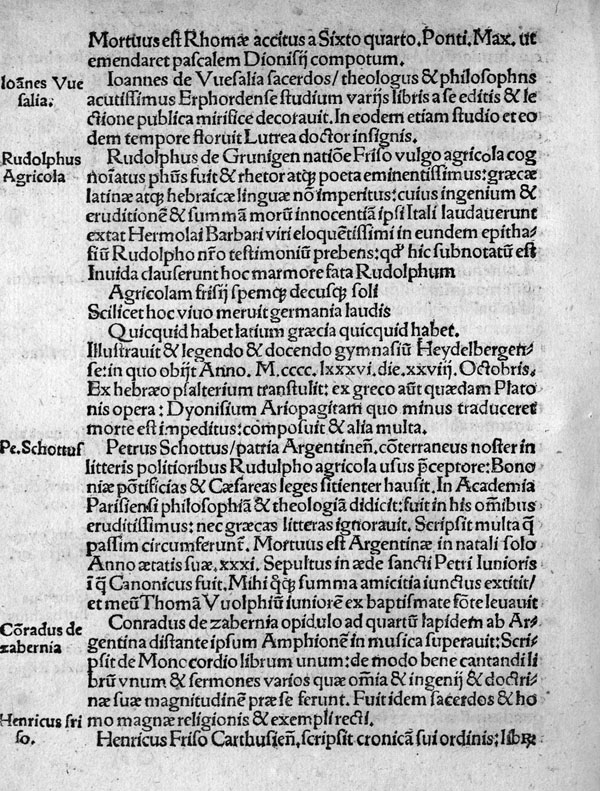 Mortuus est Rhomæ accitus a Sixto quarto. Ponti. Max. ut
emendaret pascalem Dionisij compotum.
Ioānes Vue
salia.
Ioannes de Vuesalia sacerdos/ theologus & philosophns
acutissimus Erphordense studium varijs libris a se editis & le
ctione publica mirifice decorauit. In eodem etiam studio et eo
dem tempore floruit Lutrea doctor insignis.
Rudolphus
Agricola
Rudolphus de Grunigen natiōe Friso vulgo agricola cog
noīatus phūs fuit & rhetor atqꝫ poeta eminentissimus: græcæ
latinæ atqꝫ hebraicæ linguæ nō imperitus: cuius ingenium &
eruditionē & summā morū innocentiā ipsi Itali laudauerunt
extat Hermolai Barbari viri eloquētissimi in eundem epitha-
fiū Rudolpho nr̄o testimoniū prebens: qd' hic subnotatū est
Inuida clauserunt hoc marmore fata Rudolphum
Agricolam frisij spemqꝫ decusqꝫ soli
Scilicet hoc viuo meruit germania laudis
Quicquid habet latium græcia quicquid habet.
Illustrauit & legendo & docendo gymnasiū Heydelbergen-
se: in quo obijt Anno. M. cccc. lxxxvi. die. xxviij. Octobris.
Ex hebræo psalterium transtulit: ex greco aūt quædam Plato
nis opera: Dyonisium Ariopagitam quo minus traduceret
morte est impeditus: composuit & alia multa.
Pe. Schottus
Petrus Schottus/ patria Argentineñ. cōterraneus noster in
litteris politioribus Rudulpho agricola usus p̄ceptore: Bono
niæ pōtificias & Cæsareas leges sitienter hausit. In Academia
Parisiensi philosophiā & theologiā didicit: fuit in his om̄ibus
eruditissimus: nec græcas litteras ignorauit. Scripsit multa q̄
passim circumferunt̄. Mortuus est Argentinæ in natali solo
Anno ætatis suæ. xxxi. Sepultus in æde sancti Petri Iunioris
ī q̄ Canonicus fuit. Mihi qꝫqꝫ summa amicitia iunctus extitit/
et meū Thomā Vuolphiū iuniorē ex baptismate fōte leuauit
Cōradus de
zabernia
Conradus de zabernia opidulo ad quartū lapidem ab Ar-
gentina distante ipsum Amphionē in musica superauit: Scri-
psit de Monocordio librum unum: de modo bene cantandi li
brū vnum & sermones varios quæ om̄ia & ingenij & doctri-
næ suæ magnitudinē præ se ferunt. Fuit idem sacerdos & ho
mo magnæ religionis & exempli recti.
Henricus fri
so.
Henricus Friso Carthusieñ. scripsit cronicā sui ordinis: libꝝ